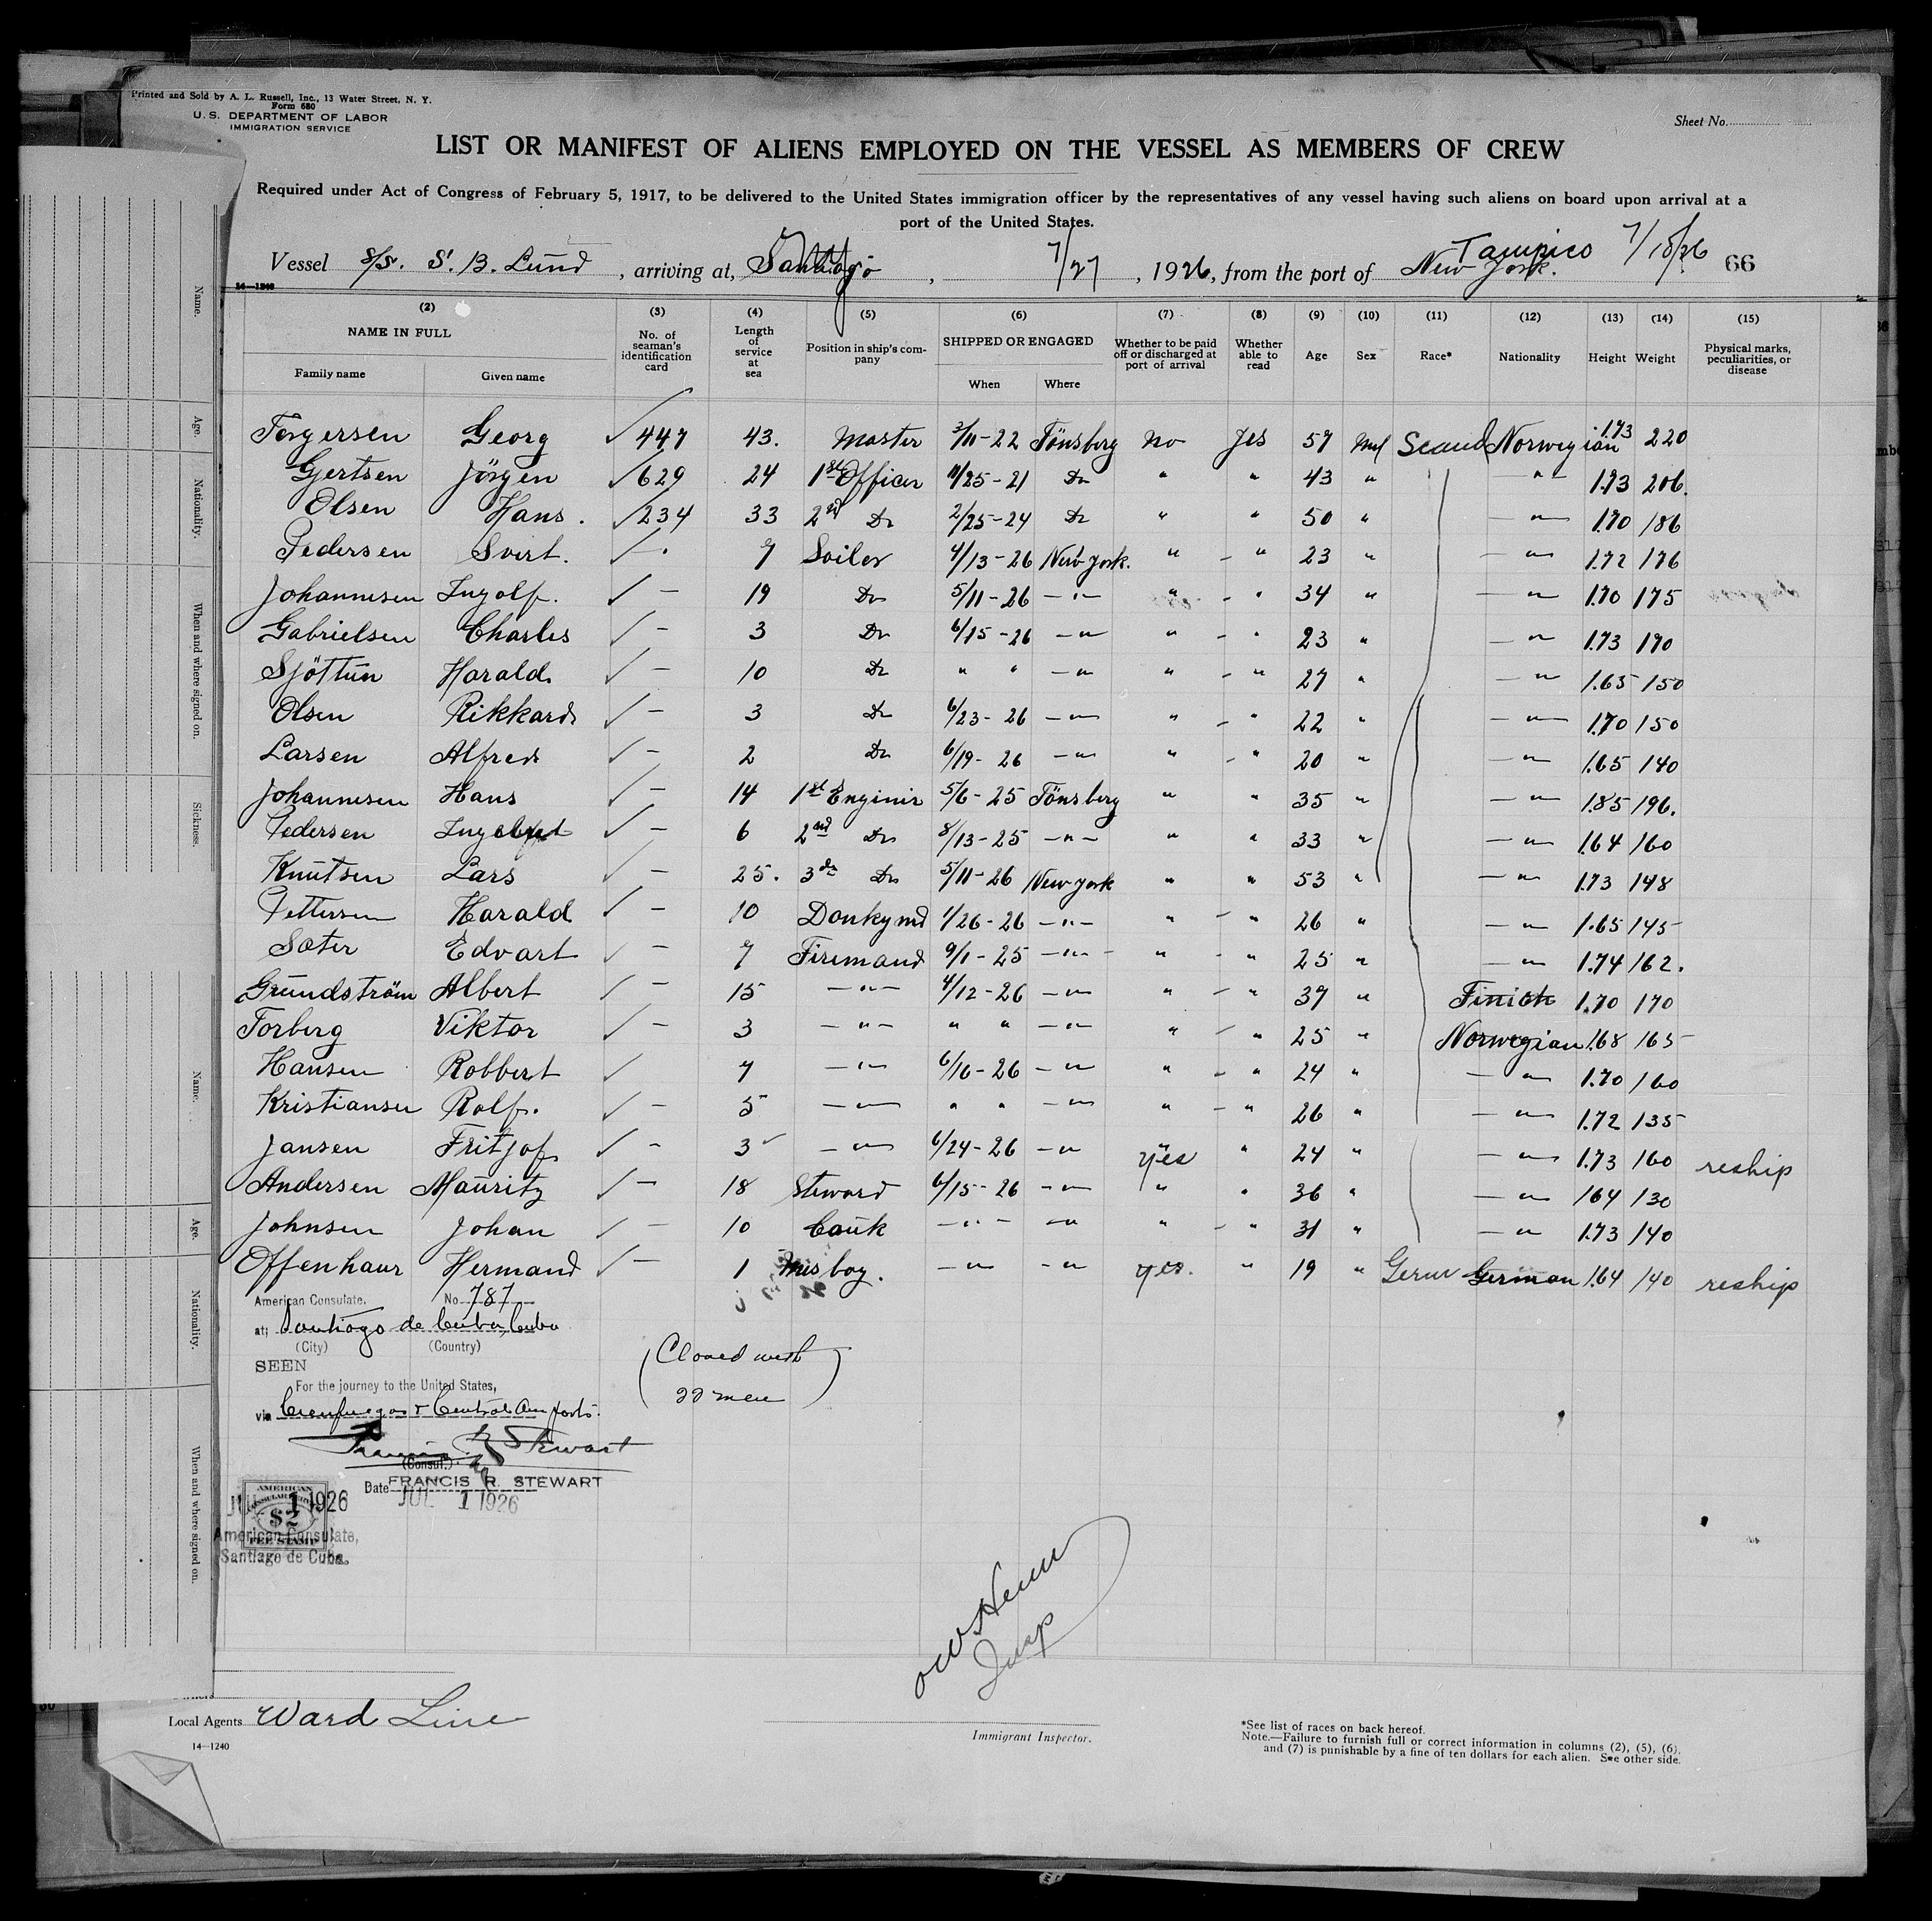 Printed and Sold by A. L. Russell, Inc., 13 Water Street, N. Y.
Form 680
U. S. DEPARTMENT OF LABOR
IMMIGRATION SERVICE
Sheet No.
LIST OR MANIFEST OF ALIENS EMPLOYED ON THE VESSEL AS MEMBERS OF CREW
Required under Act of Congress of February 5, 1917, to be delivered to the United States immigration officer by the representatives of any vessel having such aliens on board upon arrival at a
port of the United States.
Vessel S/S. S. B. Lund, arriving at, Santiago, 7/27, 1926, from the port of New York. Tampico 7/18/26 66
14—1240
(2) (3) (4) (5) (6) (7) (8) (9) (10) (11) (12) (13) (14) (15)
NAME IN FULL No. of seaman's identification card Length of service at sea Position in ship's company SHIPPED OR ENGAGED Whether to be paid off or discharged at port of arrival Whether able to read Age Sex Race* Nationality Height Weight Physical marks, peculiarities, or disease
Family name Given name When Where
Torgersen Georg ✓ 447 43. Master 3/11-22 Tönsberg no Yes 57 Mal Scand Norwegian 1.73 220
Gjertsen Jörgen ✓ 629 24 1st Officer 11/25-21 Do " " 43 " — " — 1.73 206.
Olsen Hans. ✓ 234 33 2nd Do 2/25-24 Do " " 50 " — " — 1.70 186
Pedersen Svert. ✓ — 7 Soiler 4/13-26 New York. " — " 23 " — " — 1.72 176
Johannesen Ingolf. ✓ — 19 Do 5/11-26 — " — " — " 34 " — " — 1.70 175
Gabrielsen Charles ✓ — 3 Do 6/15-26 — " " — " 23 " — " — 1.73 170
Sjöttun Harald ✓ — 10 Do " " — " " — " 27 " — " — 1.65 150
Olsen Rikkard ✓ — 3 Do 6/23-26 — " — " — " 22 " — " — 1.70 150
Larsen Alfred ✓ — 2 Do 6/19-26 — " " — " 20 " — " — 1.65 140
Johannesen Hans ✓ — 14 1st Enginir 5/6-25 Tönsberg " " 35 " — " — 1.85 196.
Pedersen ✓ — 6 2nd Do 8/13-25 — " — " " 33 " — " — 1.64 160
Knutsen Lars ✓ — 25. 3de Do 5/11-26 New York " " 53 " — " — 1.73 148
Pettersen Harald ✓ — 10 Donkymd 1/26-26 — " — " — " 26 " — " — 1.65 145
Sater Edvart ✓ — 7 Firemand 9/1-25 — " — " — " 25 " — " — 1.74 162.
Grundström Albert ✓ — 15 — " — 4/12-26 — " " — " 37 " Finish 1.70 170
Torberg Viktor ✓ — 3 — " — " " — " " — " 25 " Norwegian 1.68 165
Hansen Robbert ✓ 7 — " — 6/16-26 — " " — " 24 " — " — 1.70 160
Kristiansen Rolf. ✓ — 5 — " — " " — " — " — " 26 " — " — 1.72 135
Jansen Fritjof ✓ — 3 — " — 6/24-26 — " yes " 24 " — " — 1.73 160 reship
Andersen Mauritz ✓ — 18 Steward 6/15-26 — " — " " 36 " — " — 164 130
Johnsen Johan ✓ — 10 Couk — " — — " " — " 31 " — " — 1.73 140
Offenhaur Hermand ✓ — 1 mis boy. — " — — " yes. " 19 " Germ German 1.64 140 reship
American Consulate. No. 787
at; Santiago de Cuba, Cuba
(City) (Country)
SEEN
For the journey to the United States,
via Cienfuegos & Central Am ports.
Francis R Stewart
(Consul.)
FRANCIS R. STEWART
Date JUL 1 1926
(Closed with
22 men)
AMERICAN
CONSULAR SERVICE
$2
FEE STAMP
JUL 1 1926
American Consulate,
Santiago de Cuba.
Insp
Local Agents Ward Line
14—1240
Immigrant Inspector.
*See list of races on back hereof.
Note.—Failure to furnish full or correct information in columns (2), (5), (6),
and (7) is punishable by a fine of ten dollars for each alien. See other side.
Name.
Age.
Nationality.
When and where signed on.
Sickness.
Name.
Age.
Nationality.
When and where signed on.